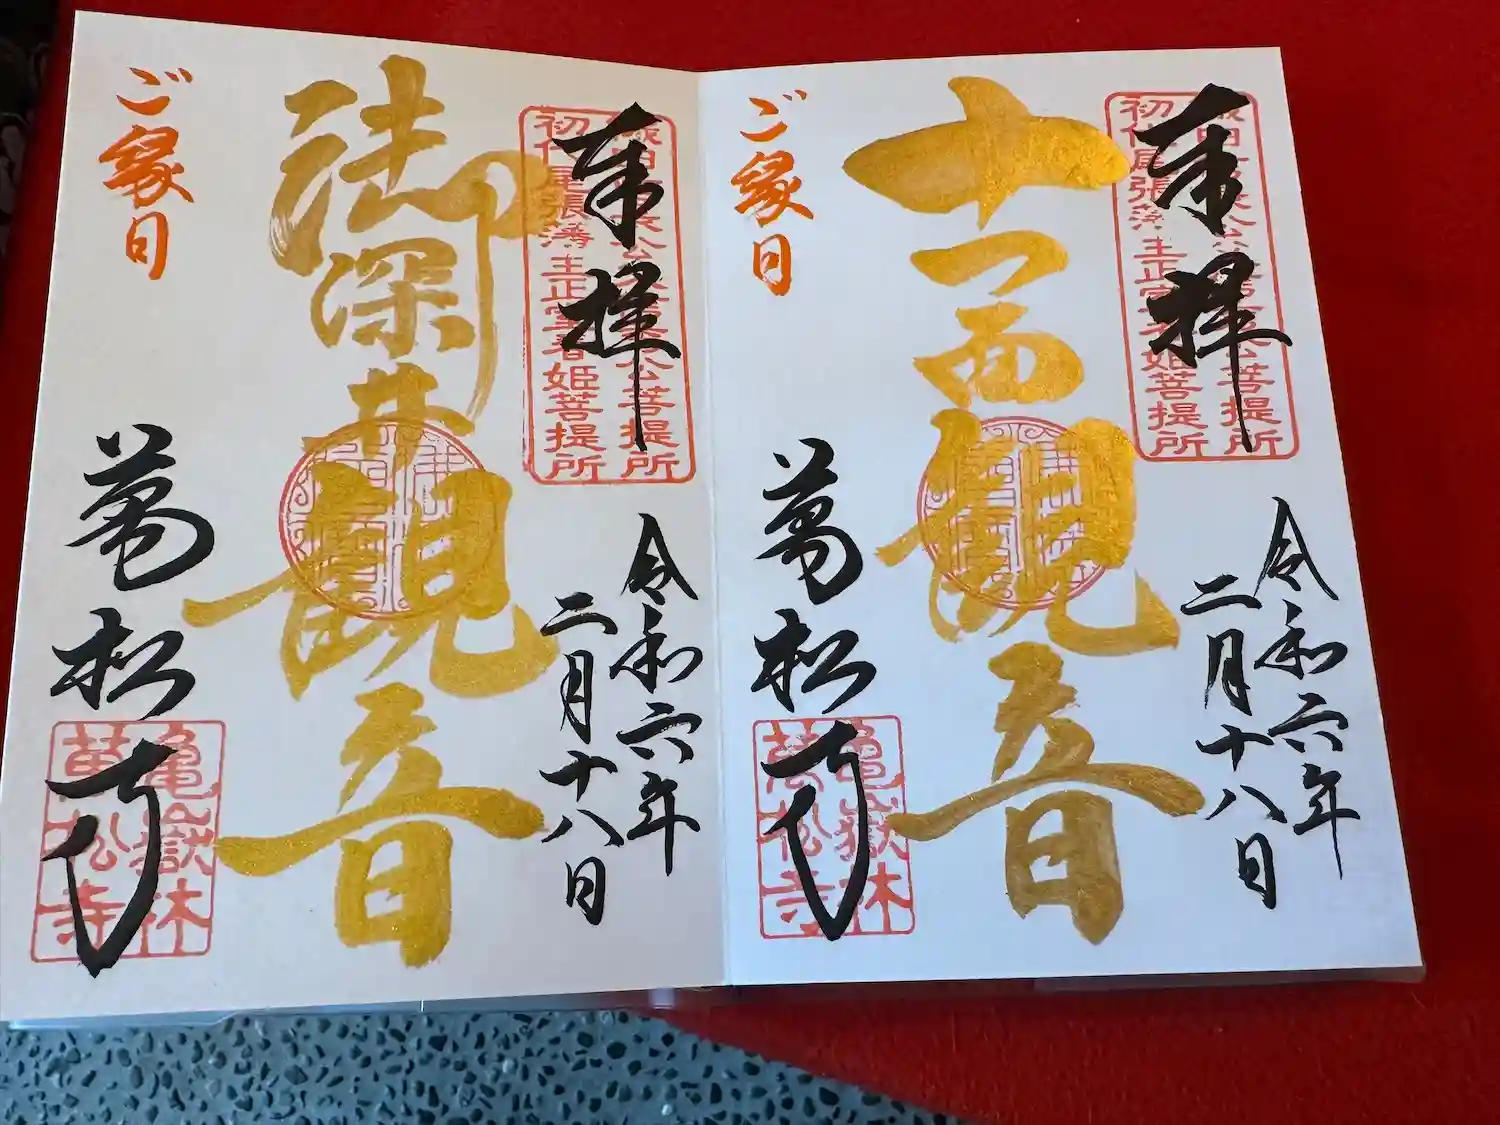 奉拝
初代尾張藩主正室春姫菩提所
令和六年
二月十八日
十一面観音
ご縁日
萬松寺
亀嶽林
萬松寺
奉拝
初代尾張藩主正室春姫菩提所
令和六年
二月十八日
御深井観音
ご縁日
萬松寺
亀嶽林
萬松寺